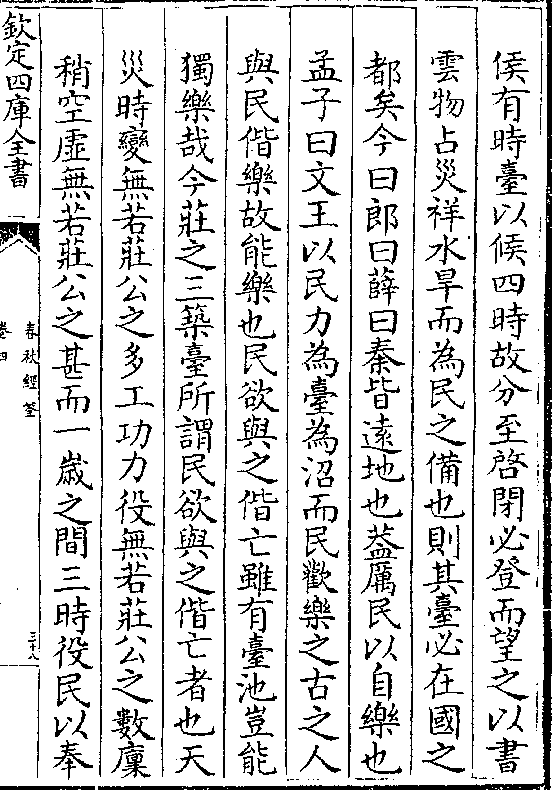 侯有時臺以候四時故分至啓閉必登而望之以書
雲物占災祥水旱而為民之備也則其臺必在國之
都矣今曰郎曰薛曰秦皆遠地也葢厲民以自樂也
孟子曰文王以民力為臺為沼而民歡樂之古之人
與民偕樂故能樂也民欲與之偕亡雖有臺池豈能
獨樂哉今莊之三築臺所謂民欲與之偕亡者也天
災時變無若莊公之多工功力役無若莊公之數廩
稍空虛無若莊公之甚而一嵗之間三時役民以奉
欽定四庫全書
春秋經筌
卷四
三十八